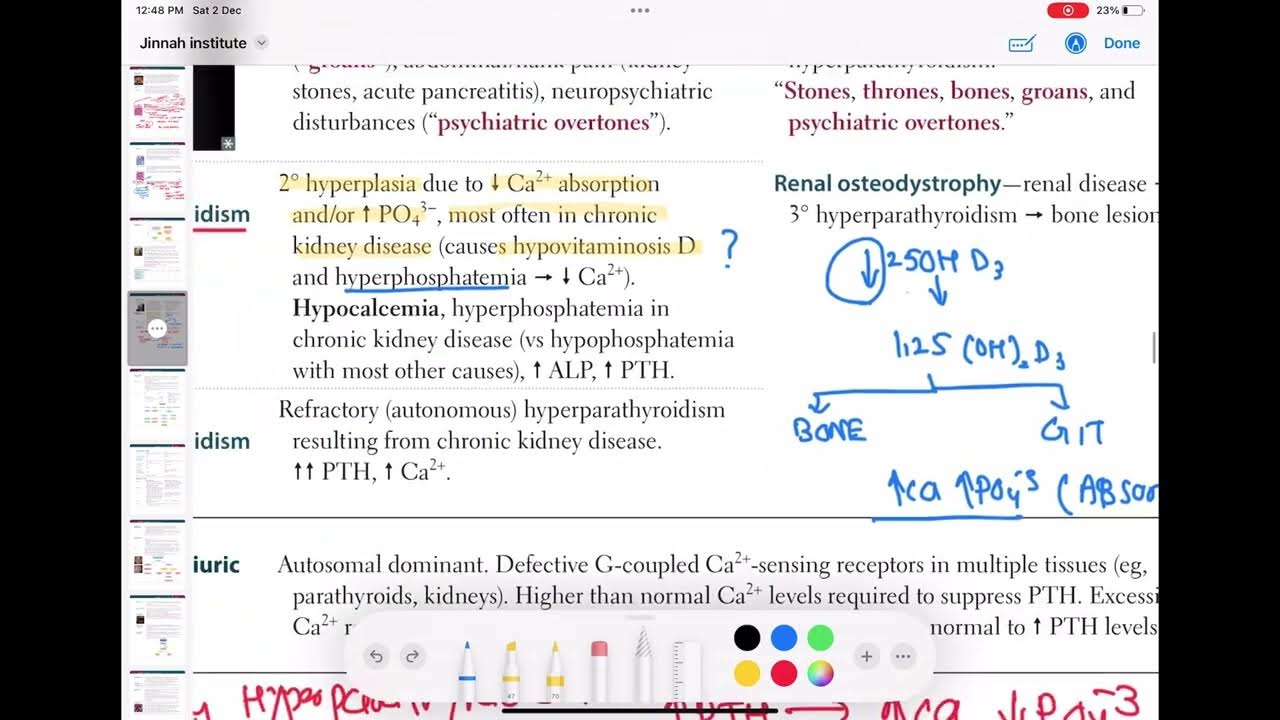 12:48 PM Sat 2 Dec
23%
Jinnah institute
Done
stones, acute pancreatitis), neuropsychiatric
disturbances ("psychiatric overtones").
"Stones, thrones, bones, groans, and
psychiatric overtones."
idism
2° hyperplasia due to ↓ Ca²⁺ absorption
and/or ↑ PO₄³⁻, most often in chronic
kidney disease (causes hypovitaminosis D
and hyperphosphatemia → ↓ Ca²⁺).
Hypocalcemia, hyperphosphatemia in
chronic kidney disease (vs hypophosphatemia
with most other causes), ↑ ALP, ↑ PTH.
?
Renal osteodystrophy—renal disease
3° hyperparathyroidism → bone lesion
↓ 25OH D₃
↓
1,25 (OH)₂ D₃
BONE GIT
↑Ca ↑PO₄⁻³ (ABSOR
idism
Refractory (autonomous) hyperparathyroidism
resulting from chronic kidney disease.
↑↑ PTH, ↑ Ca²⁺.
iuric
Autosomal dominant. Defective G-coupled Ca²⁺-sensing receptors in multiple tissues (eg,
parathyroids, kidneys). Higher than normal Ca²⁺ levels required to suppress PTH. Excessi
normal to ↑ PTH levels
47
70